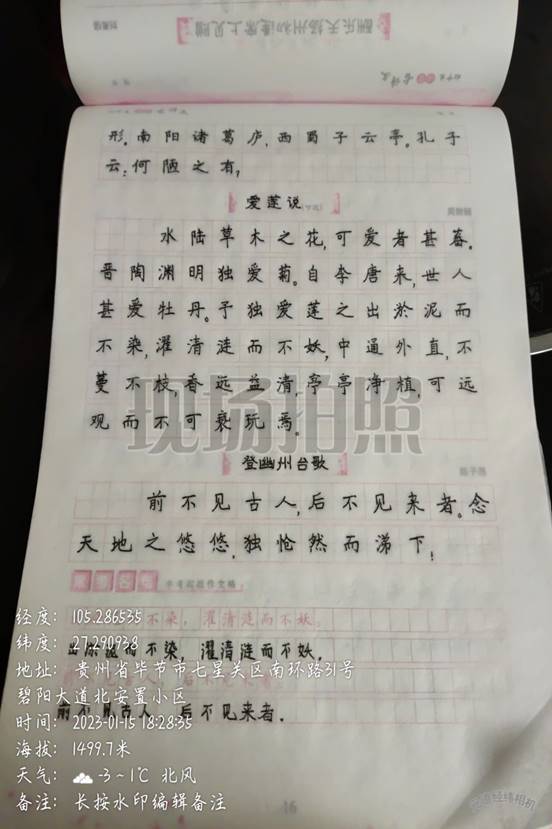 酬乐天扬州初逢席上见赠
刘禹锡
形。南阳诸葛庐，西蜀子云亭。孔子
云：何陋之有？
爱莲说
水陆草木之花，可爱者甚蕃。
晋陶渊明独爱菊。自李唐来，世人
甚爱牡丹。予独爱莲之出於泥而
不染，濯清涟而不妖，中通外直，不
蔓不枝，香远益清，亭亭净植，可远
观而不可亵玩焉。
现场拍照
登幽州台歌
陈子昂
前不见古人，后不见来者。念
天地之悠悠，独怆然而涕下！
不染，濯清涟而不妖。
出淤泥而不染，濯清涟而不妖。
前不见古人，后不见来者。
经度：105.286535
纬度：27.290938
地址：贵州省毕节市七星关区南环路31号
碧阳大道北安置小区
时间：2023-01-15 18:28:35
海拔：1499.7米
天气：-3~1℃ 北风
备注：长按水印编辑备注
16
经纬相机